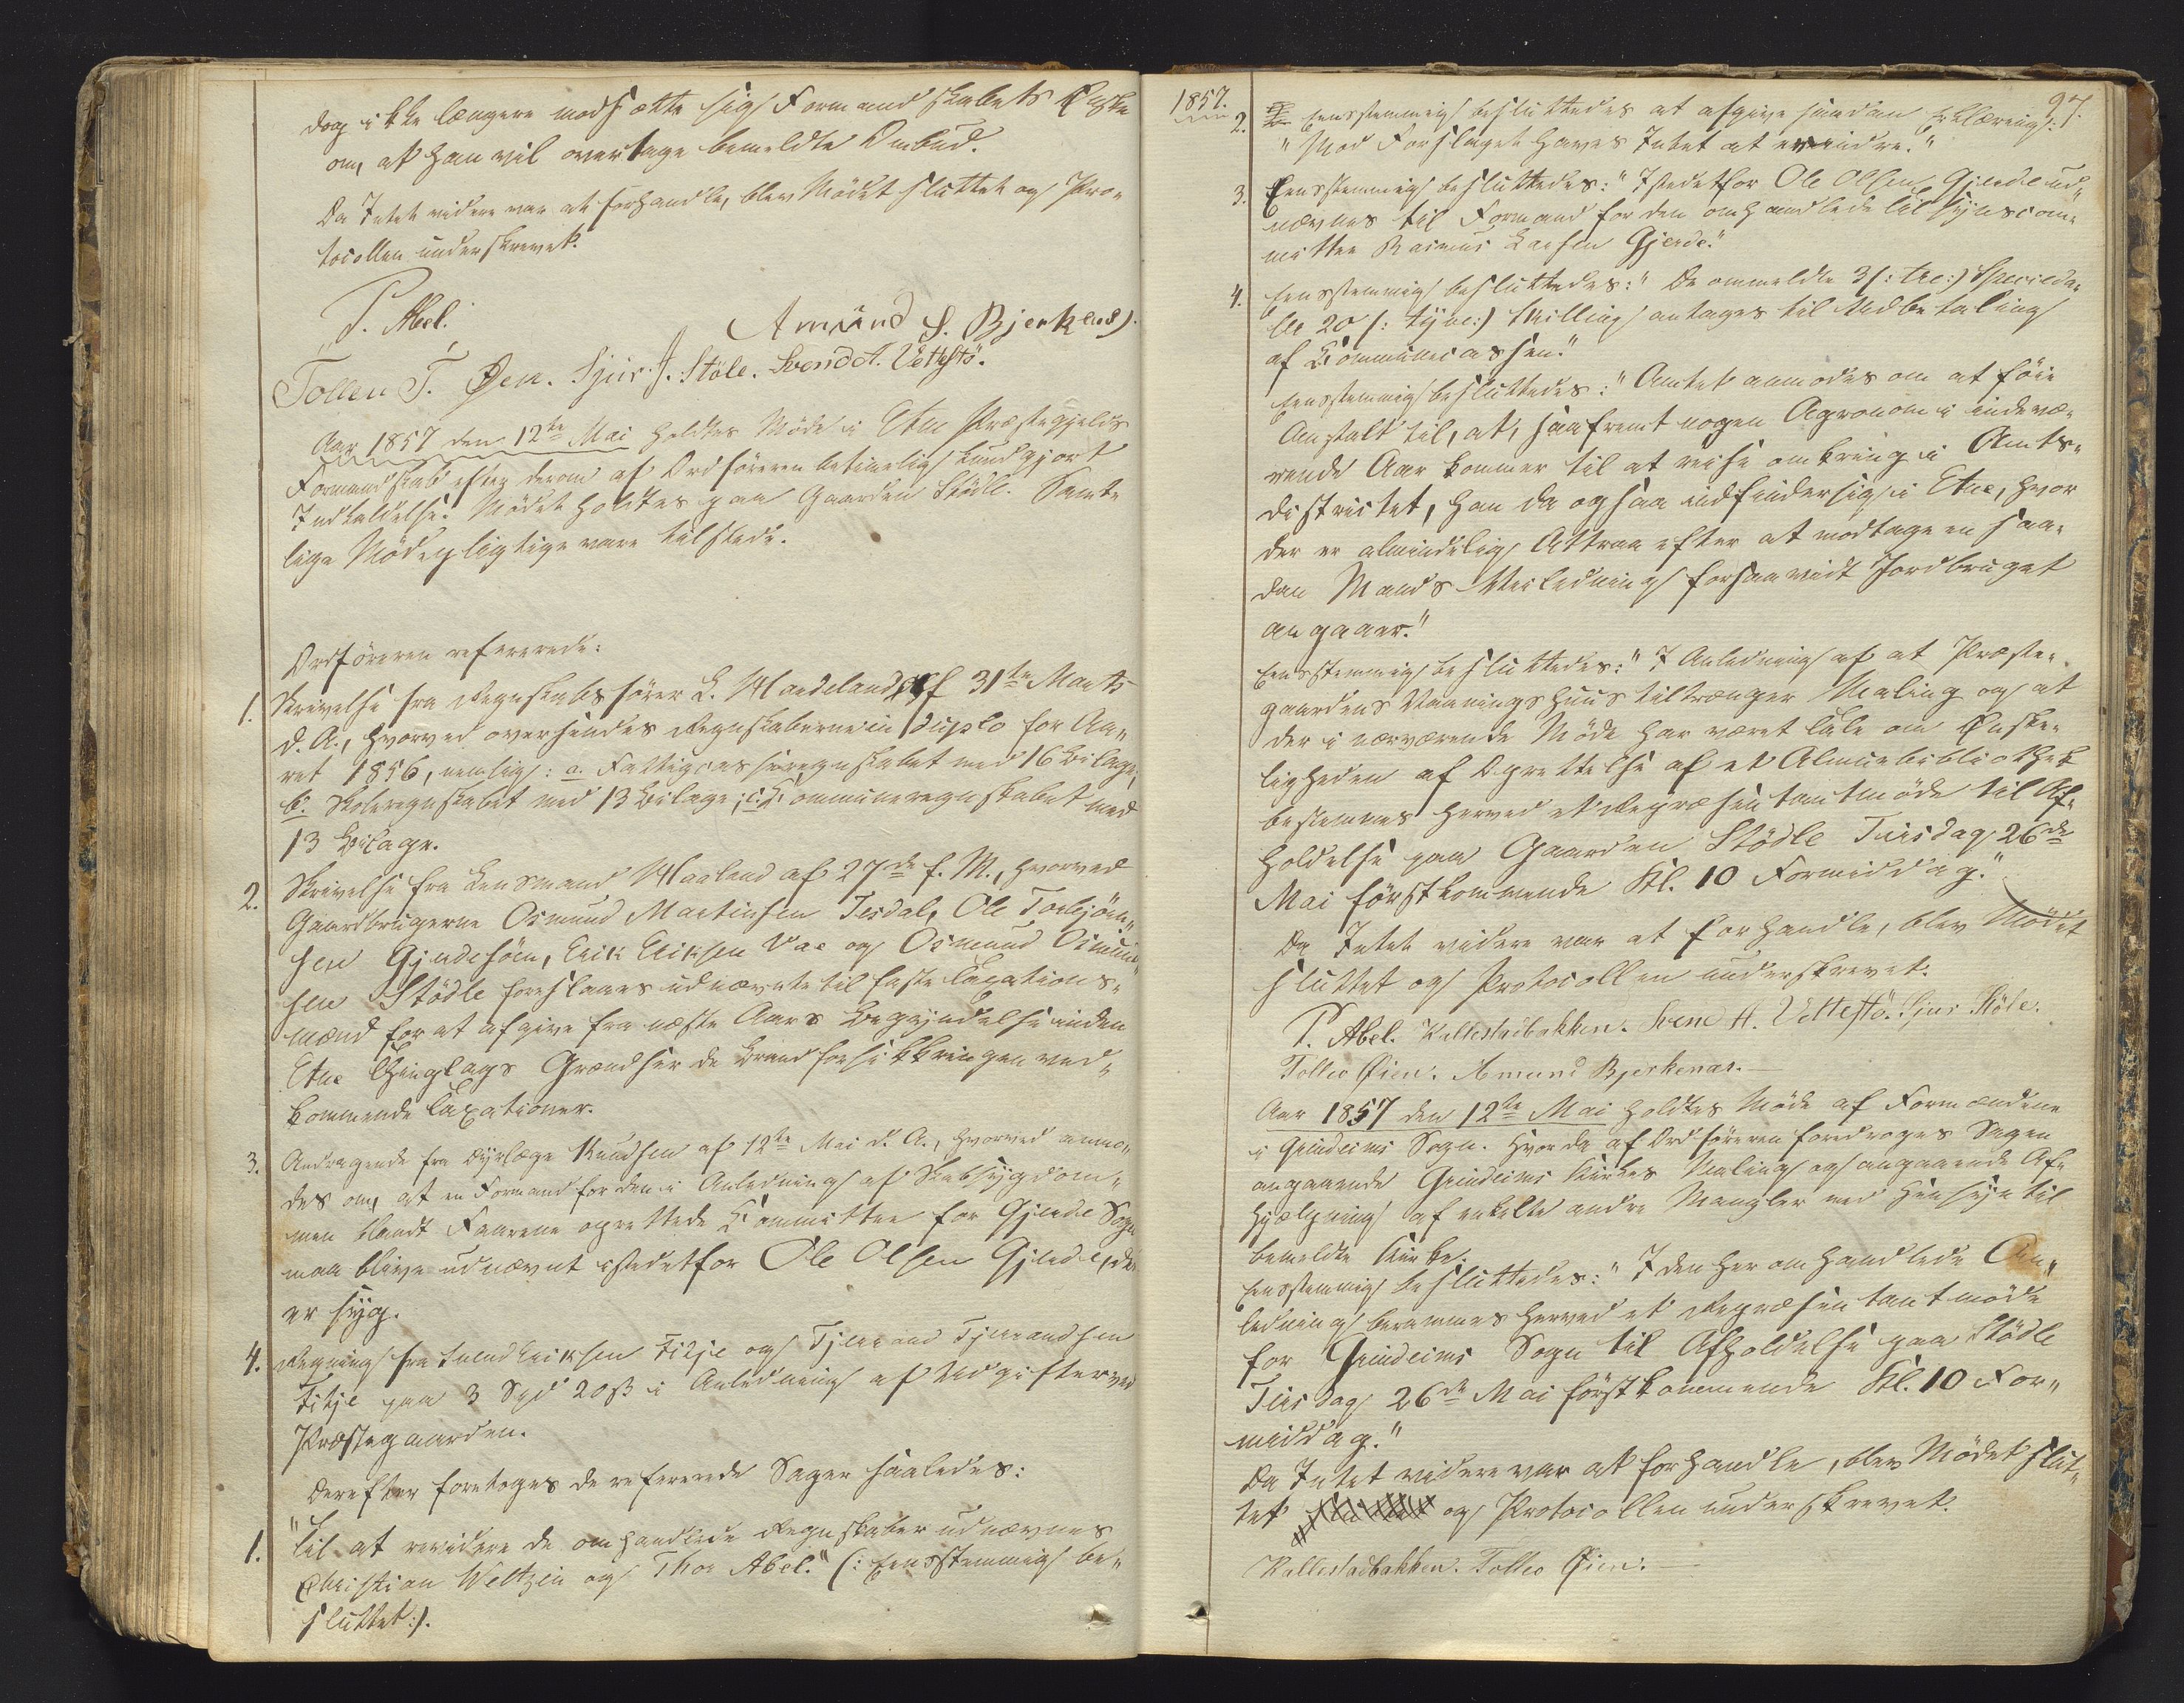 dog ikke længere modsætte sig Formandskabets Ønske
om, at han vil overtage bemeldte Ombud.
Da Intet videre var at forhandle, blev Mödet sluttet og Pro-
tocollen underskrevet.
P. Abel.
Amund S. Bjerkenes.
Tollen T. Øen. Sjur J. Stöle. Svend A. Vettestö.
Aar 1857 den 12te Mai holdtes Möde i Etne Præstegjelds
Formandskab efter derom af Ordföreren betimelig kundgjort
Indkaldelse. Mödet holdtes paa Gaarden Stödle. Samt-
lige Mödepligtige vare tilstede.
Ordföreren refererede:
1. Skrivelse fra Regnskabsförer L. Haadeland af 31te Marts
d. A., hvorved oversendes Regnskaberne in duplo for Aa-
ret 1856, nemlig: a. Fattigcasseregnskabet med 16 Bilage;
b. Skoleregnskabet med 13 Bilage; c. Kommuneregnskabet med
13 Bilage.
2. Skrivelse fra Lensmand Haaland af 27de f. M., hvorved
Gaardbrugerne Osmund Martinsen Tesdal, Ole Torbjörn-
sen Gjerdesöen, Erik Eriksen Vae og Osmund Osmund-
sen Stödle foreslaaes udnævnte til faste Taxations-
mænd for at afgive fra næste Aars Begyndelse inden
Etne Thinglags Grændser de Brandforsikkringen ved-
kommende Taxationer.
3. Andragende fra Dyrlæge Knudsen af 12te Mai d. A., hvorved anmo-
des om, at en Formand for den i Anledning af Skabsygdom-
men blandt Faarene oprettede Committee for Gjerde Sogn
maa blive udnævnt istedetfor Ole Olsen Gjerde, der
er syg.
4. Regning fra Svend Eriksen Fitje og Tjerand Tjerandsen
Fitje paa 3 Spd 20 ß i Anledning af Udgifter ved
Præstegaarden.
Derefter foretoges de refererede Sager saaledes:
1. "Til at revidere de omhandlede Regnskaber udnævnes
Christian Weltzin og Thor Abel." (: Eensstemmig be-
sluttet:).
1857.
97.
2. Eensstemmig besluttedes at afgive saadan Erklæring:
"Mod Forslaget haves Intet at erindre."
3. Eensstemmig besluttedes: "Istedetfor Ole Olsen Gjerde ud-
nævnes til Formand for den omhandlede Tilsynscom-
mittee Rasmus Larsen Gjerde."
4. Eensstemmig besluttedes: "De ommeldte 3 (: tre:) Specieda-
ler 20 (: tyve:) Skilling antages til Udbetaling
af Communecassen."
Eensstemmig besluttedes: "Amtet anmodes om at föie
Anstalt til, at, saafremt nogen Agronom i indevæ-
rende Aar kommer til at reise omkring i Amts-
districtet, han da ogsaa indfinder sig i Etne, hvor
der er almindelig Attraa efter at modtage en saa-
dan Mands Veiledning forsaavidt Jordbruget
angaaer."
Eensstemmig besluttedes: "I Anledning af at Præste-
gaardens Vaaningshuus tiltrænger Maling og at
der i nærværende Möde har været tale om Ønske-
ligheden af Oprettelse af et Almuebibliothek
bestemmes herved et Repræsentantmöde til Af-
holdelse paa Gaarden Stödle Tirsdag 26de
Mai förstkommende Kl. 10 Formiddag."
Da Intet videre var at forhandle, blev Mödet
sluttet og Protocollen underskrevet.
P. Abel. Kallestadbakken. Svend A. Vettestö. Sjur Stöle.
Tolleo Øien. Amund Bjerkenas.
Aar 1857 den 12te Mai holdtes Möde af Formændene
i Grindeims Sogn. Hvor da af Ordföreren foredroges Sagen
angaaende Grindeims Kirkes Maling og angaaende Af-
hjælpning af enkelte andre Mangler med Hensyn til
bemeldte Kirke.
Eensstemmig besluttedes: "I den her omhandlede An-
ledning berammes herved et Repræsentantmöde
for Grindeims Sogn til Afholdelse paa Stödle
Tirsdag 26de Mai förstkommende Kl. 10 For-
middag."
Da Intet videre var at forhandle, blev Mödet slut-
tet og Protocollen underskrevet.
Kallestadbakken. Tolleo Øien.